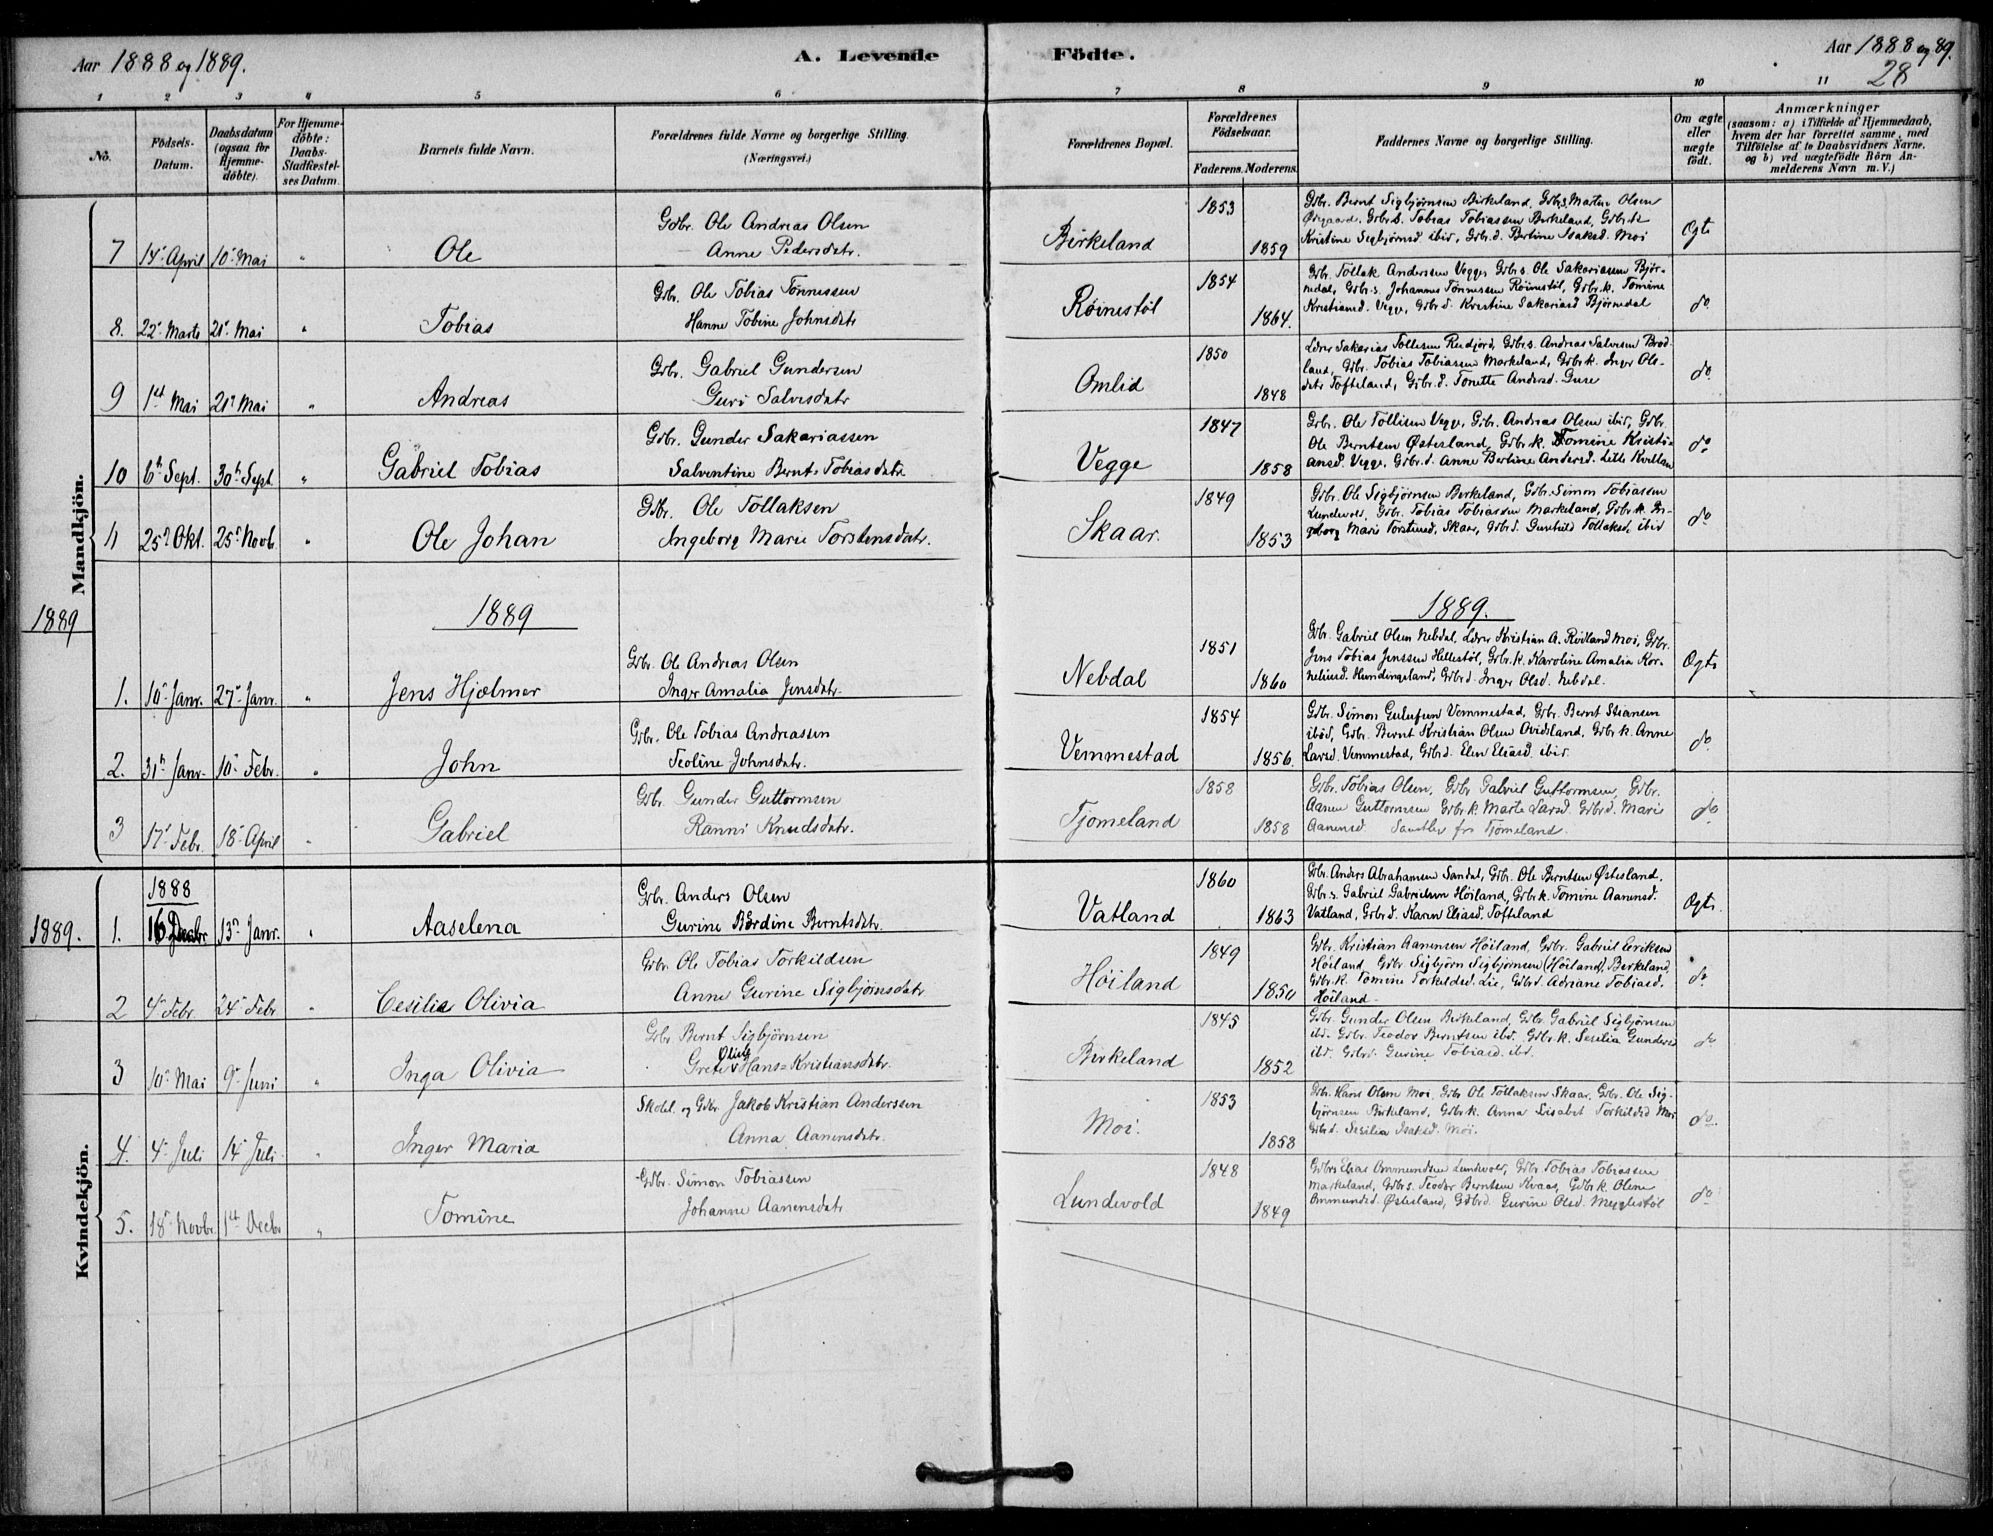 Aar 1888 og 1889.
A. Levende
Födte.
Aar 1888 og 89.
28
1 2 3 4 5 6 7 8 9 10 11
No.
Födsels-Datum.
Daabsdatum (ogsaa for Hjemmedöbte).
For Hjemmedöbte: Daabs-Stadfæstelses Datum.
Barnets fulde Navn.
Forældrenes fulde Navne og borgerlige Stilling.
(Næringsvei.)
Forældrenes Bopæl.
Forældrenes Födselsaar.
Faderens. Moderens.
Faddernes Navne og borgerlige Stilling.
Om ægte eller uægte födt.
Anmærkninger
(saasom: a) i Tilfælde af Hjemmedaab,
hvem der har forrettet samme, med
Tilföielse af to Daabsvidners Navne.
og b) ved uægtefödte Börn Anmelderens Navn m.V.)
Mandkjön.
7 14. April 10. Mai " Ole
Gdbr. Ole Andreas Olsen
Anne Pedersdatr.
Birkeland 1853 1859
Gdbr. Bernt Sigbjørnsen Birkeland, Gdbr.s. Martin Olsen
Gdbr.s. Tobias Tobiassen Birkeland, Gdbr.k.
Kristine Sigbjørnsd. ibid, Gdbr.d. Bertine Isaksd. Moi
Ægte
8. 22. Marts 21. Mai " Tobias
Gdbr. Ole Tobias Tønnessen
Hanne Tobine Johnsdatr
Røinestøl 1854 1864.
Gdbr. Tollak Anderssen Vegge, Gdbr.s. Ole Sakariassen Bjør-
nedal, Gdbr.s. Johannes Tønnessen Röinestöl, Gdbr.k. Tomine
Kristiansd. Vegge, Gdbr.d. Kristine Sakariasd Bjørnedal
do
9 1st Mai 21. Mai " Andreas
Gdbr. Gabriel Gundersen
Guri Salvesdatr
Omlid 1850 1848
Lærer Sakarias Tollisen Reidjord, Gdbr.s. Andreas Salvesen Brod-
land, Gdbr. Tobias Tobiassen Markeland, Gdbr.k. Inger Ols-
datr Tofteland, Gdbr.d. Tonette Andersd.
do
10 6. Sept. 30. Sept. " Gabriel Tobias
Gdbr. Gunder Sakariassen
Salventine Bernt. Tobiasdatr
Vegge 1847 1858
Gdbr. Ole Tollisen Vegge, Gdbr. Andreas Olsen ibid, Gdbr.
Ole Berntsen Østesland, Gdbr.k. Tomine Kristi-
ansd. Vegge, Gdbr.d. Anne Bertine Andersd.
do
11 25. Okt. 25. Novb. " Ole Johan
Gdbr. Ole Tollaksen
Ingeborg Marie Torstensdatr.
Skaar. 1849 1853
Gdbr. Ole Sigbjørnsen Birkeland, Gdbr. Simon Tobiassen
Lundevold, Gdbr. Tobias Tobiassen Markeland, Gdbr.k. In-
geborg Marie Torstensd, Skaar, Gdbr.d. Gunhild Tollaksd, ibid
do
1889 1889 1889.
1. 10. Janr. 27. Janr. " Jens Hjælmer
Gdbr. Ole Andreas Olsen
Inger Amalia Jensdatr.
Nebdal 1851 1860
Gdbr. Gabriel Olsen Nebdal, Lærer Kristian A. Moi, Gdbr.
Jens Tobias Jenssen Hellestöl, Gdbr.k. Karoline Amalia Kor-
neliusd. Hundingeland, Gdbr.d. Inger Olsd. Nebdal.
Ægte
2. 31. Janr. 10. Febr. " John
Gdbr. Ole Tobias Andreassen
Teoline Johnsdatr.
Vemmestad 1854 1856.
Gdbr. Simon Gulufsen Vemmestad, Gdbr. Bernt Stiansen
ibid, Gdbr. Bernt Kristian Olsen Gdbr.k. Anne
Larsd. Vemmestad, Gdbr.d. Elen Eliasd. ibid.
do
3 17. Febr. 18. April " Gabriel
Gdbr. Gunder Guttormsen
Ranni Knudsdatr.
Tjomeland 1858 1858
Gdbr. Tobias Olsen, Gdbr. Gabriel Guttormsen, Gdbr.
Aanen Guttormsen Gdbr.k. Marte Larsd. Gdbr.d. Marie
Aanensd. Samtlige fra Tjømeland.
do
Kvindekjön.
1889.
1. 1888 16 Decbr 13. Janr. " Aaselena
Gdbr. Anders Olsen
Gurine Bərdine Berntsdatr.
Vatland 1860 1863
Gdbr. Anders Abrahamsen Sandal, Gdbr. Ole Berntsen Østesland.
Gdbr.s. Gabriel Gabrielsen Höiland, Gdbr.k. Tomine Aanensd.
Vatland, Gdbr.d. Karen Eliasd. Tofteland
Ægte.
2 4. Febr. 24. Febr " Cesilia Olivia
Gdbr. Ole Tobias Torkildsen
Anne Gurine Sigbjørnsdatr
Höiland 1849 1850
Gdbr. Kristian Aanensen Höiland, Gdbr. Gabriel Eeriksen
Höiland Gdbr Sigbjørn Sigbjørnsen (Höiland), Birkeland,
Gdbr.k. Tomine Torkildsd. Lie, Gdbr.d. Adriane Tobiasd.
Höiland
do
3 10. Mai 9. Juni " Inga Olivia
Gdbr. Bernt Sigbjørnsen
Grete Olivie Hans=Kristiansdatr.
Birkeland 1845 1852
Gdbr. Gunder Olsen Birkeland, Gdbr. Gabriel Sigbjørnsen
ibd. Gdbr. Teodor Berntsen ibd. Gdbr.k. Sesilia Gundersd
ibd. Gdbr.d. Gurine Tobiasd. ibd.
do
4. 4. Juli 14 Juli " Inger Maria
Skohl. og Gdbr. Jakob Kristian Anderssen
Anna Aanensdatr.
Moi. 1853 1858
Gdbr. Hans Olsen Moi, Gdbr Ole Tollaksen Skaar, Gdbr. Ole Sig-
bjørnsen Birkeland, Gdbr.k. Anna Lisabet Torkildsd Moi
Gdbr.d. Sesilia Isaksd. Moi.
do.
5. 18. Novbr. 1st Decbr " Tomine
Gdbr. Simon Tobiassen
Johanne Aanensdatr
Lundevold 1848 1849
Gdbr.s Elias Ommundsen Lundevold, Gdbr Tobias Tobiassen
Markeland, Gdbr.s. Teodor Berntsen Kvaas, Gdbr.k. Olene
Ommundsd Østesland, Gdbr.d. Gurine Olsd. Megglestöl
do